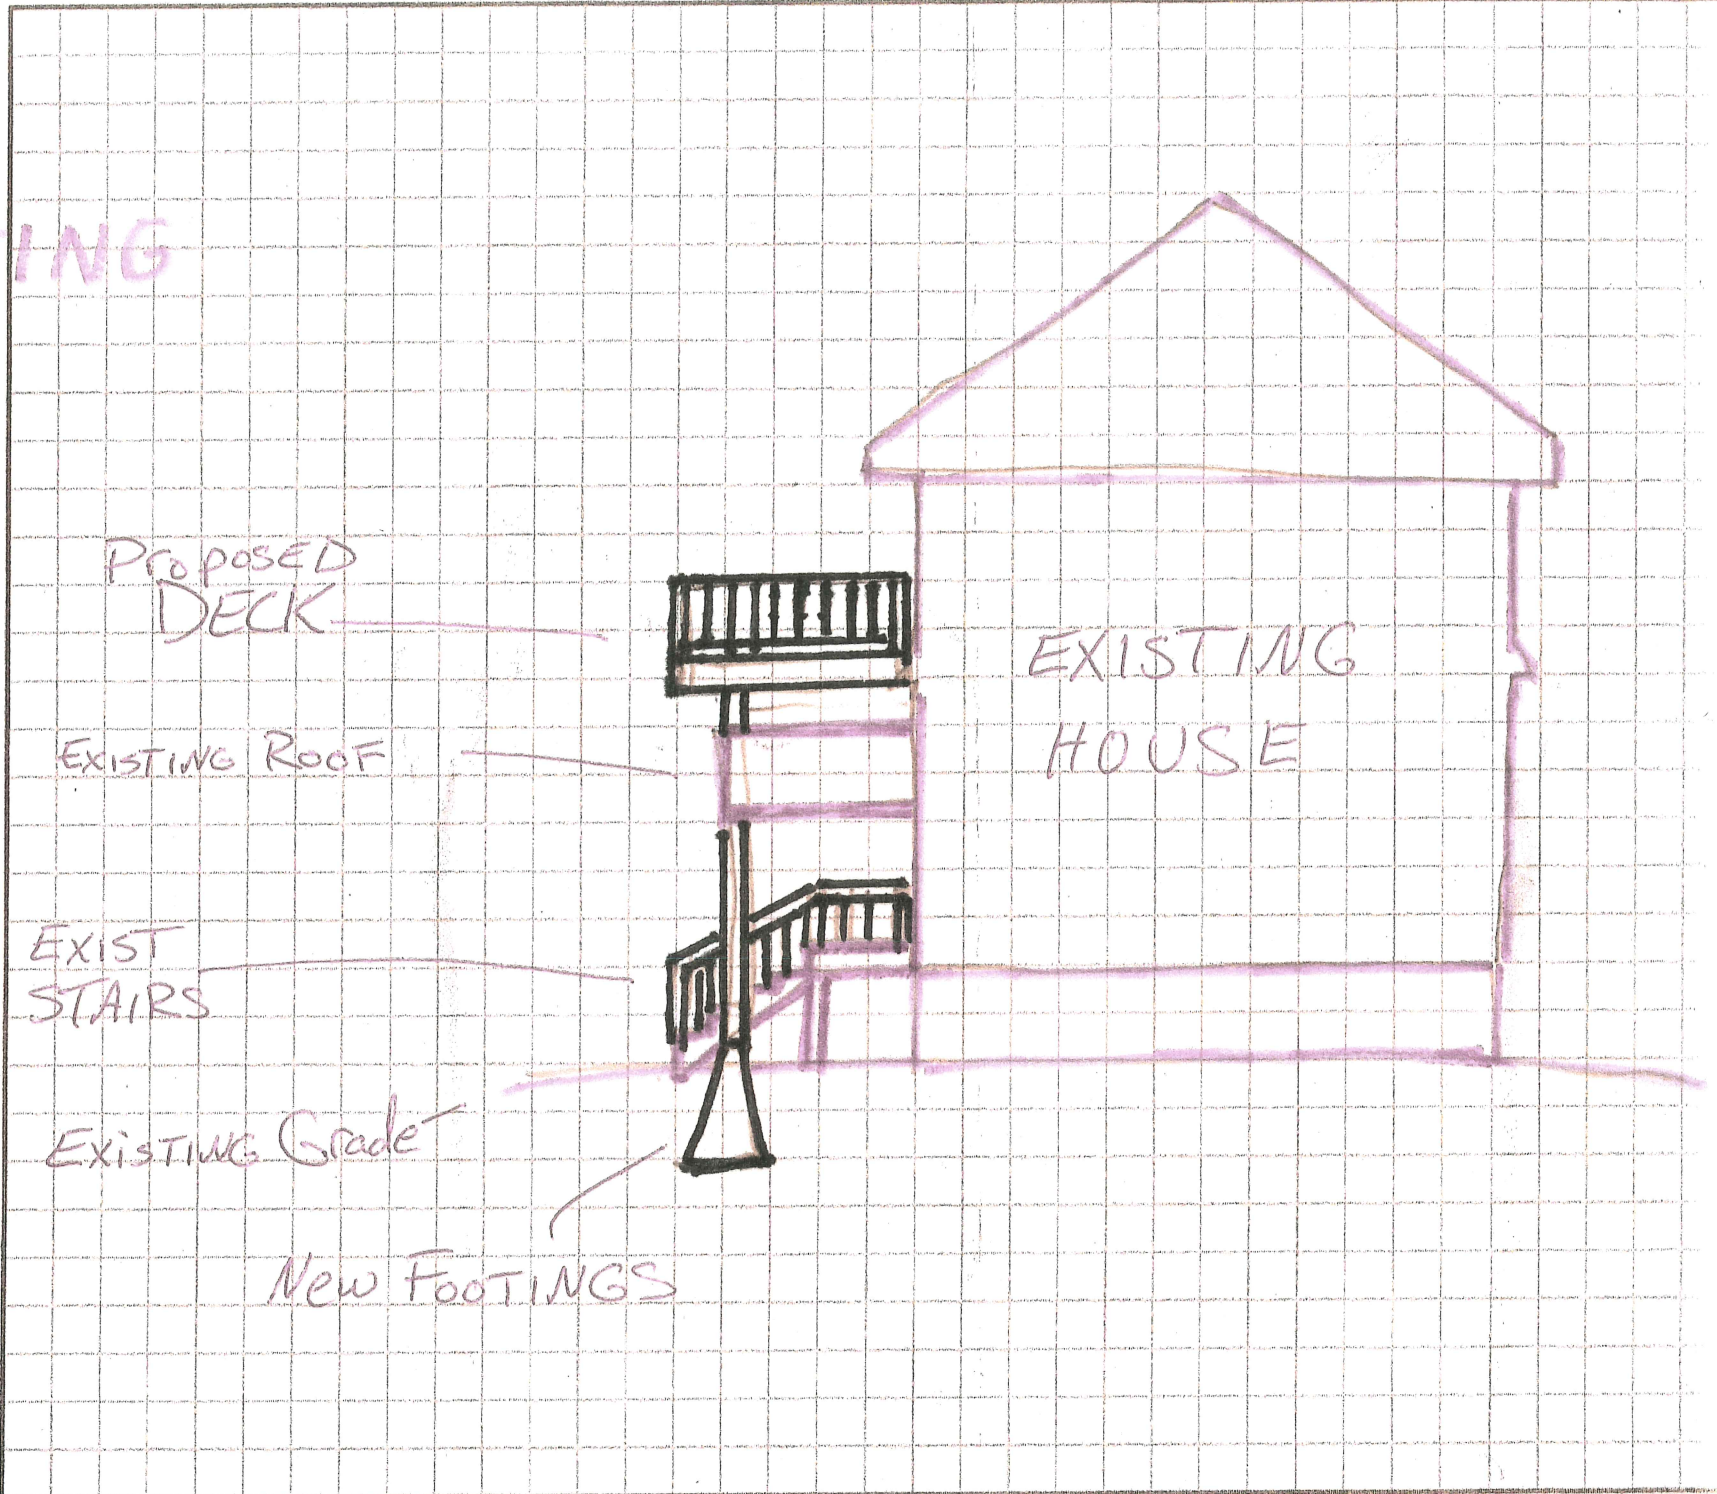 ING
Proposed
DECK
EXISTING
HOUSE
EXISTING ROOF
EXIST
STAIRS
EXISTING Grade
New FOOTINGS